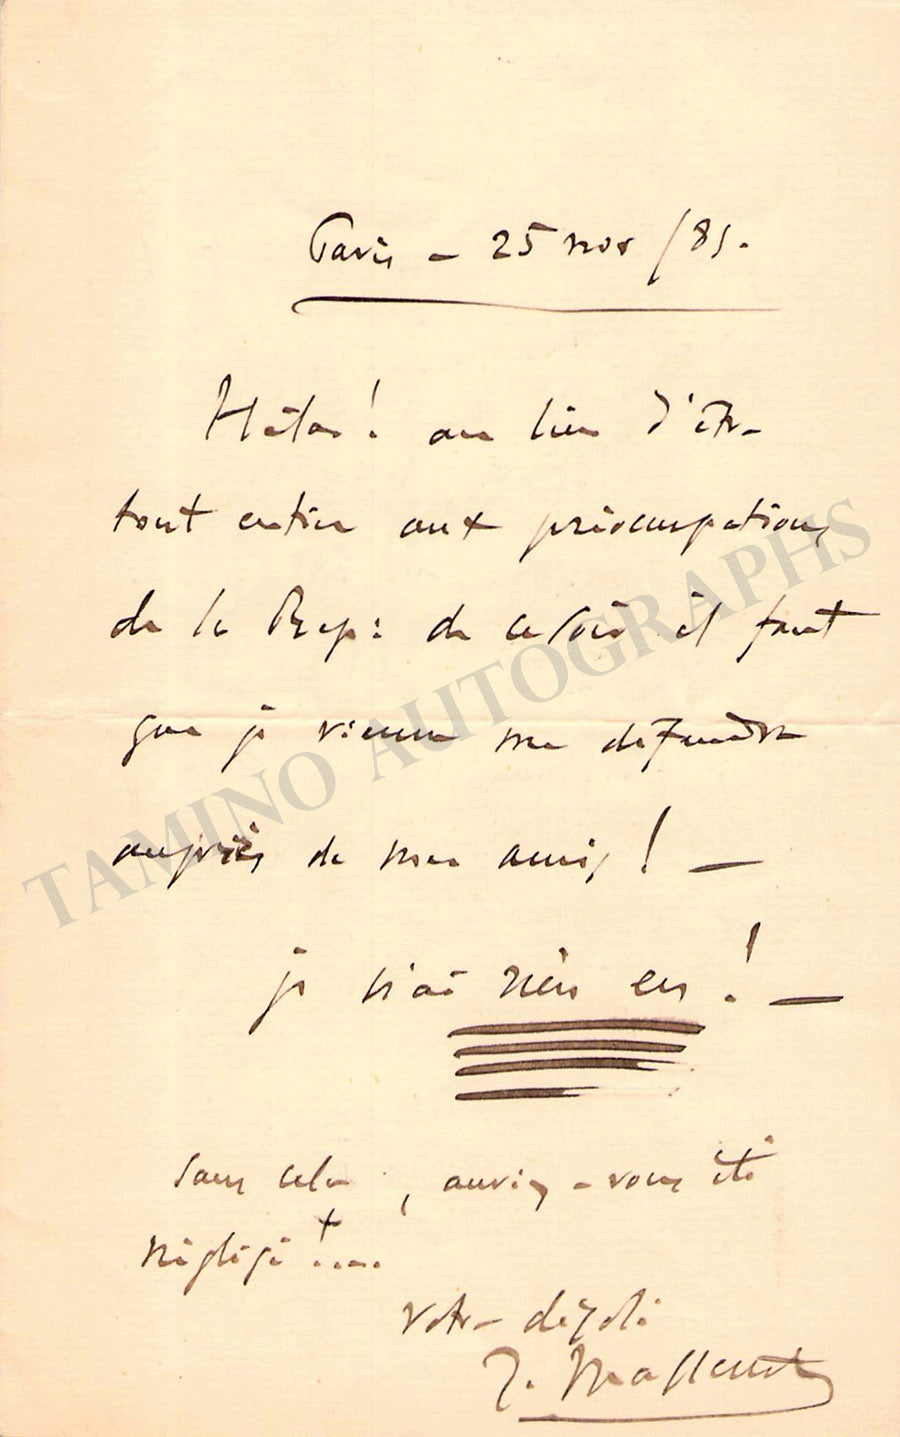 Paris – 25 nov /85.
Hélas! au lieu d'être
tout entier aux préoccupations
de la Rép: de ce soir il faut
que je vienne me défendre
auprès de mes amis! —
je n'ai rien eu! —
sans cela, auriez-vous été
négligé!....
votre désolé
J. Massenet
TAMINO AUTOGRAPHS